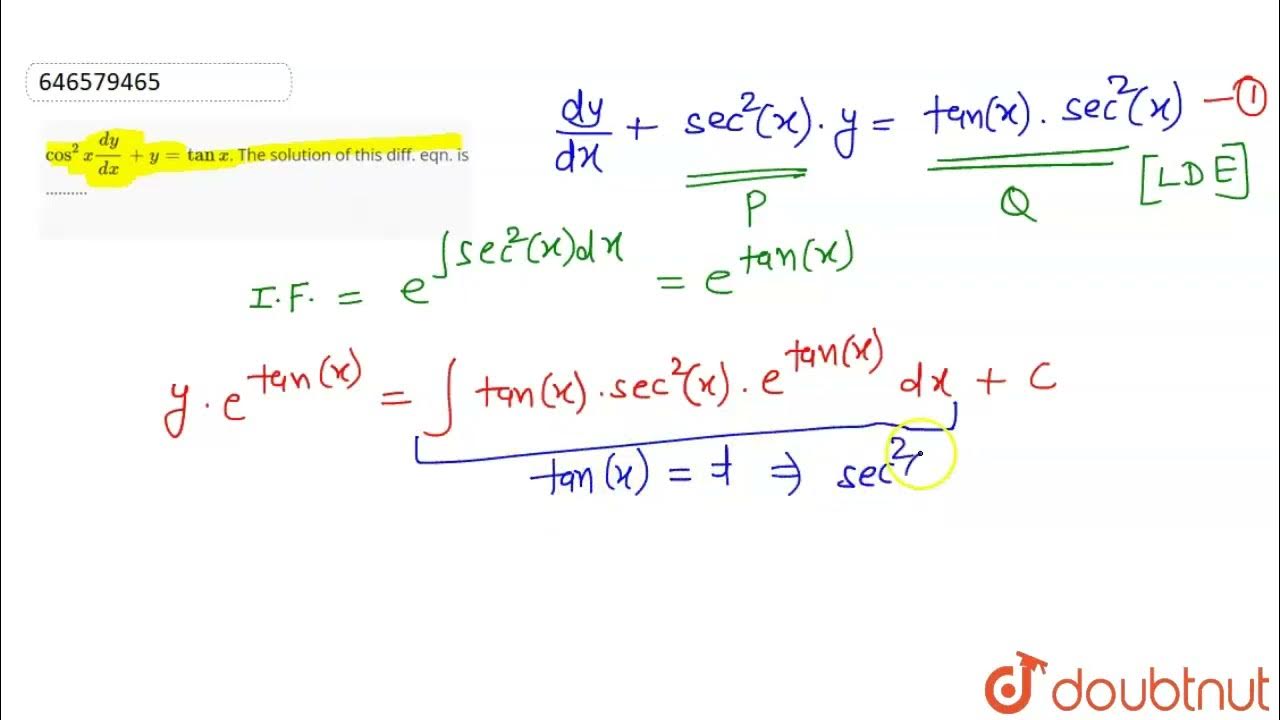 646579465
cos² x dy/dx + y = tan x. The solution of this diff. eqn. is
..........
dy/dx + sec²(x). y = tan(x). sec²(x) — ①
P
Q
[LDE]
I.F. = e^∫sec²(x)dx = e^tan(x)
y . e^tan(x) = ∫ tan(x) . sec²(x) . e^tan(x) dx + C
tan(x) = t ⇒ sec²(
doubtnut